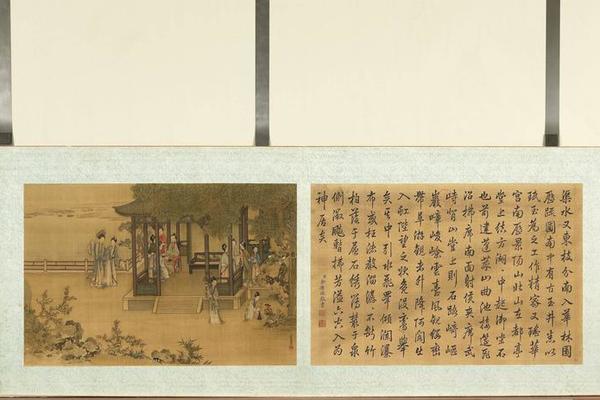 渠水又東枝分南入華林園
歷疏圃南圃中有古玉井悉以
珉玉為之工作精密又瑤華
宮南歷景陽山北山在都亭
堂上結方湖中起御坐石
也前建蓬萊山曲池接筵飛
沼拂席南面射侯夾席武
峙背山堂上則石路崎嶇
巖嶂峻嶮雲臺風觀纓巒
帶阜游觀者升降阿閣出
入虹陛望之狀鳧沒鸞舉
矣其中引水飛皋傾瀾瀑
布或枉渚聲溜潺潺不斷竹
柏蔭于層石繡薄叢于泉
側微飇暫拂芳溢六空入為
神居矣